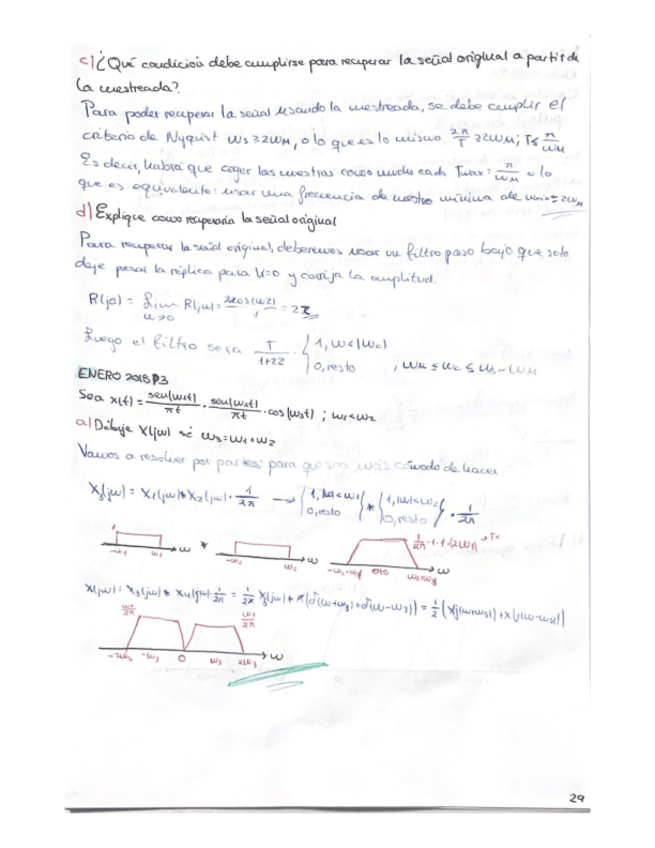 c) ¿Qué condición debe cumplirse para recuperar la señal original a partir de
la muestreada?
Para poder recuperar la señal usando la muestreada, se debe cumplir el
criterio de Nyquist ωs ≥ 2ωM, o lo que es lo mismo 2π/T ≥ 2ωM; T ≤ π/ωM
Es decir, habrá que coger las muestras como mucho cada Tmax = π/ωM o lo
que es equivalente: usar una frecuencia de muestreo mínima de ωmin = 2ωM
d) Explique como recuperaría la señal original
Para recuperar la señal original, deberemos usar un filtro paso bajo que solo
deje pasar la réplica para k=0 y corrija la amplitud.
R(j0) = lim ω→0 R(jω) =
Luego el filtro será T/1+2Z · { 1, ω<|ωc|
0, resto ; ωM ≤ ωc ≤ ωs - ωM
ENERO 2018 P3
Sea x(t) = sen(ω1t)/πt · sen(ω2t)/πt · cos(ω3t) ; ω1<ω2
a) Dibuje X(jω) si ω3 = ω1 + ω2
Vamos a resolver por partes para que sea más cómodo de hacer:
X3(jω) = X1(jω) * X2(jω) · 1/2π → { 1, |ω|<ω1
0, resto } * { 1, |ω|<ω2
0, resto } · 1/2π
1 -ω1 ω1 ω * -ω2 ω2 ω 1/2π · 1 · 1 · (2ω1) ω
X(jω) = X3(jω) * X4(jω) · 1/2π = 1/2π X3(jω) * π(δ(ω+ω3) + δ(ω-ω3)) = 1/2 (X(j(ω+ω3)) + X(j(ω-ω3)))
ω1/2π ω1/2π
-2ω3 -ω3 0 ω3 2ω3 ω
29